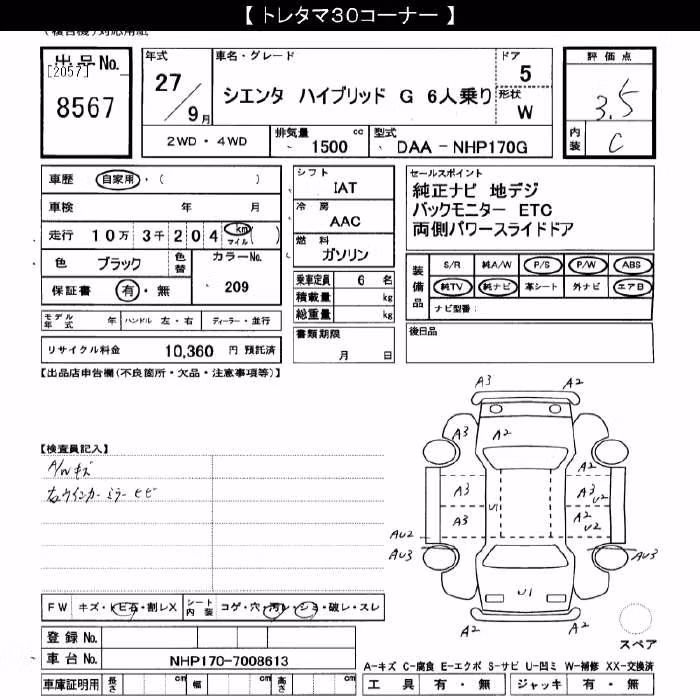 【 トレタマ30コーナー 】
出品No.
[2057]
8567
年式
27/9月
車名・グレード
シエンタ ハイブリッド G 6人乗り
ドア
5
形状
W
2WD・4WD
排気量 1500 cc
型式 DAA-NHP170G
評価点
3.5
内装 C
車歴 自家用・( )
車検 年 月
走行 10万3千204 km マイル ( )
色 ブラック 色替
カラーNo. 209
保証書 有・無
モデル年式 年 ハンドル 左・右 ディーラー・並行
リサイクル料金 10,360 円 預託済
シフト
IAT
冷房
AAC
燃料
ガソリン
乗車定員 6 名
積載量 kg
総重量 kg
書類期限
月 日
セールスポイント
純正ナビ 地デジ
バックモニター ETC
両側パワースライドドア
装備品
S/R 純A/W P/S P/W ABS
純TV 純ナビ 革シート 外ナビ エアB
ナビ型番:
後日品
【出品店申告欄(不良箇所・欠品・注意事項等)】
【検査員記入】
A/Wキズ
右ウインカーミラーヒビ
A3 A2
A3 A2
A2
A3 A3 U2
A3 U1 A2 U2
AU2
AU3 AU3
U1
A2 A3
スペア
FW キズ・トビ石・割レX
シート内装 コゲ・穴・汚レ・シミ・破レ・スレ
登録No.
車台No. NHP170-7008613
車庫証明用 長さ cm 幅 cm 高さ cm
A-キズ C-腐食 E-エクボ S-サビ U-凹ミ W-補修 XX-交換済
工具 有・無 ジャッキ 有・無